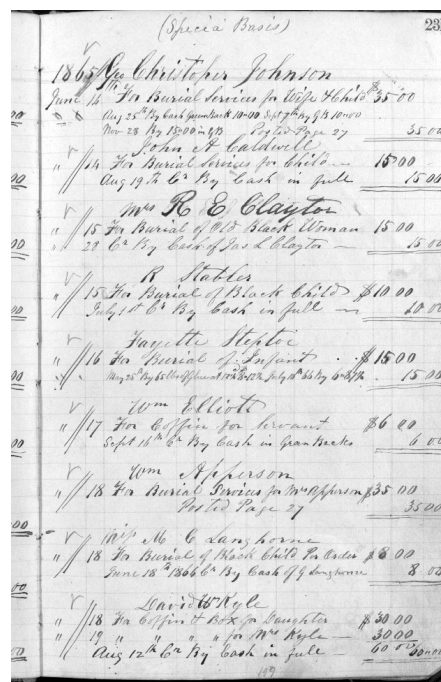 (Specia Basis) 23
1865 Geo Christopher Johnson
June 14 For Burial Services for Wife & Child $35 00
Aug 25th By Cash Green Back 10=00 Sept 7th By G.B 10=00
Nov 28 By 15=00 in G/B Posted Page 27 35 00
John A Caldwell
" 14 For Burial Services for Child 15 00
Aug 19th Cr By Cash in full 15 00
Mrs R E Clayton
" 15 For Burial of Old Black Woman 15 00
28 Cr By Cash of Jas L Clayton 15 00
R Stabler
" 15 For Burial of Black Child $10 00
July 1st Cr By Cash in full 10 00
Fayette Steptoe
" 16 For Burial of Infant $15 00
May 25th By 65 lbs July 18th 66 By 15 00
Wm Elliott
" 17 For Coffin for Servant $6 00
Sept 16th Cr By Cash in Green Backs 6 00
Wm Apperson
" 18 For Burial Services for Mrs Apperson $35 00
Posted Page 27 35 00
M C Langhorne
" 18 For Burial of Black Child Per Order $8 00
June 18th 1866 Cr By Cash of G Langhorne 8 00
David W Kyle
" 18 For Coffin & Box for Daughter $30 00
" 19 " " " " for Mrs Kyle 30 00
Aug 12th Cr By Cash in full 60 00 60 00